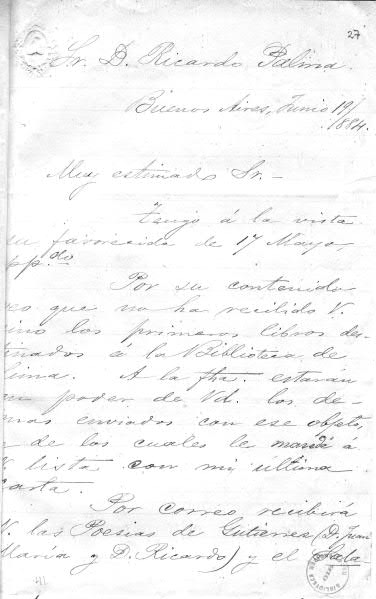 27
Sr. D. Ricardo Palma.
Buenos Aires, Junio 19/
1884.
Muy estimado Sr. -
Tengo á la vista
su favorecida de 17 Mayo,
pp.do
Por su contenido
veo que no ha recibido V.
sino los primeros libros des-
tinados á la Biblioteca de
Lima. A la fha. estarán
en poder de Vd. los de-
mas enviados con ese objeto,
y de los cuales le mandé á
V. lista con mi última
carta.
Por correo recibirá
V. las Poesias de Gutierrez (D. Juan
María y D. Ricardo) y el